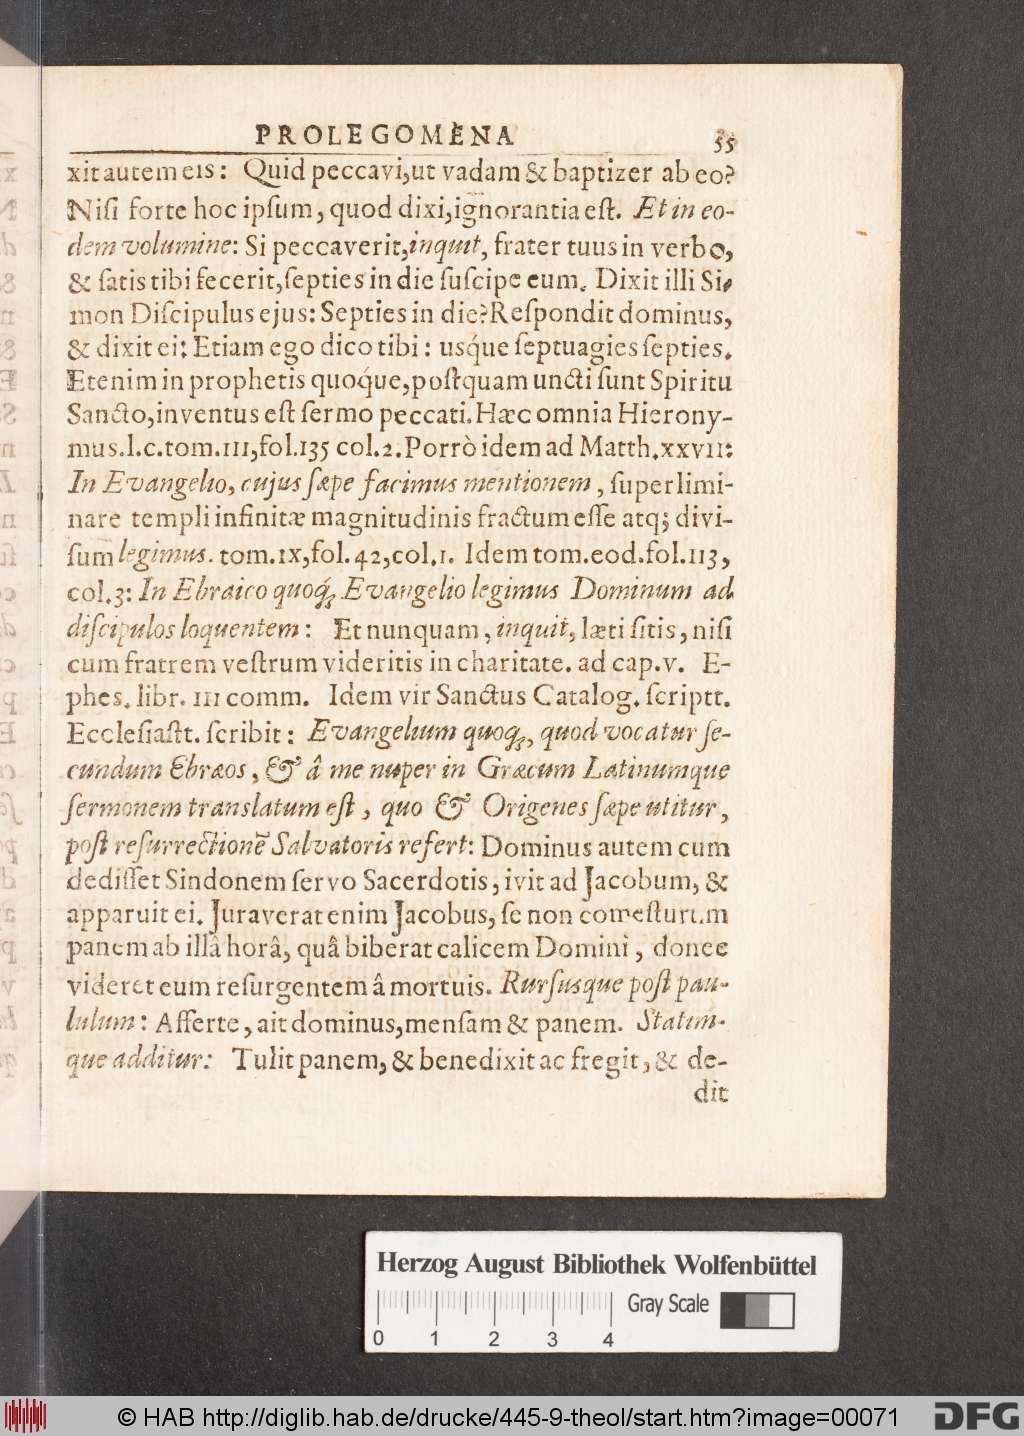 PROLEGOMENA 55
xit autem eis: Quid peccavi, ut vadam & baptizer ab eo?
Niſi forte hoc ipſum, quod dixi, ignorantia eſt. Et in eo-
dem volumine: Si peccaverit, inquit, frater tuus in verbo,
& ſatis tibi fecerit, ſepties in die ſuſcipe eum. Dixit illi Si-
mon Diſcipulus ejus: Septies in die? Reſpondit dominus,
& dixit ei: Etiam ego dico tibi: usq́ue ſeptuagies ſepties.
Etenim in prophetis quoq́ue, poſtquam uncti ſunt Spiritu
Sancto, inventus eſt ſermo peccati. Hæc omnia Hierony-
mus. l.c. tom. III, fol. 135 col. 2. Porrò idem ad Matth. XXVII:
In Evangelio, cujus ſæpe facimus mentionem, ſuperlimi-
nare templi infinitæ magnitudinis fractum eſſe atq; divi-
ſum legimus. tom. IX, fol. 42, col. 1. Idem tom. eod. fol. 113,
col. 3: In Ebraico quoq́; Evangelio legimus Dominum ad
diſcipulos loquentem: Et nunquam, inquit, læti ſitis, niſi
cum fratrem veſtrum videritis in charitate. ad cap. V. E-
phes. libr. III comm. Idem vir Sanctus Catalog. ſcriptt.
Eccleſiaſtt. ſcribit: Evangelium quoq;, quod vocatur ſe-
cundum Ebræos, & â me nuper in Græcum Latinumque
ſermonem translatum eſt, quo & Origenes ſæpe utitur,
poſt reſurrectionē Salvatoris refert: Dominus autem cum
dediſſet Sindonem ſervo Sacerdotis, ivit ad Jacobum, &
apparuit ei. Juraverat enim Jacobus, ſe non comeſturum
panem ab illâ horâ, quâ biberat calicem Domini, donec
videret eum reſurgentem â mortuis. Rurſusque poſt pau-
lulum: Afferte, ait dominus, menſam & panem. Statim-
que additur: Tulit panem, & benedixit ac fregit, & de-
dit
Herzog August Bibliothek Wolfenbüttel
Gray Scale
0 1 2 3 4
© HAB http://diglib.hab.de/drucke/445-9-theol/start.htm?image=00071 DFG